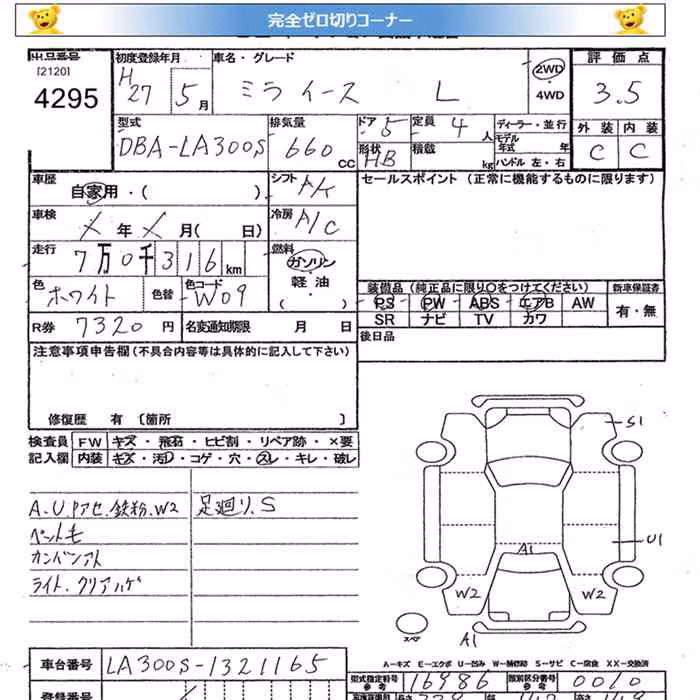 完全ゼロ切りコーナー
出品番号 初度登録年月 車名・グレード 2WD 評価点
[2120] 4295 H27 5月 ミライース L 4WD 3.5
型式 排気量 ドア 5 定員 4人 ディーラー・並行 外装 内装
DBA-LA300S 660cc 形状 HB 積載 kg モデル年式 年 C C
ハンドル 左・右
車歴 自家用・( ) シフト セールスポイント (正常に機能するものに限ります)
車検 年 月( 日) 冷房 A/C
走行 7万0千316km 燃料 ガソリン
色 ホワイト 色替 色コード W09 軽油 ( )
装備品 (純正品に限り○をつけてください) 新車保証書
PS PW ABS エアB AW 有・無
SR ナビ TV カワ
R券 7320円 名変通知期限 月 日 後日品
注意事項申告欄(不具合内容等は具体的に記入して下さい)
修復歴 有 〔箇所 〕
検査員 FW キズ・飛石・ヒビ割・リペア跡・×要
記入欄 内装 キズ・汚・コゲ・穴・スレ・キレ・破レ
A.U.Pアセ.鉄粉.W2 足廻り.S
ペット毛
カンバンアト
ライト.クリアハゲ
S1
U1
A1
W2 W2
スペア A1
A-キズ E-エクボ U-凹み W-補修跡 S-サビ C-腐食 XX-交換済
車台番号 LA300S-1321165 型式指定番号 参考 16986 類別区分番号 参考 0010
登録番号